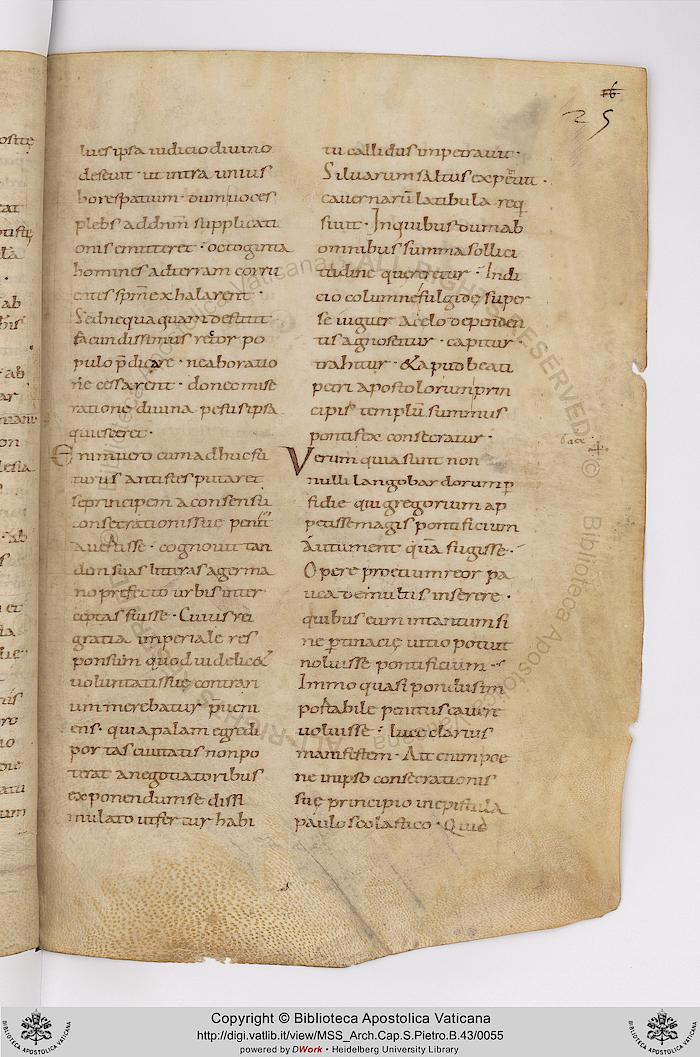 16
25
lues ipsa iudicio diuino
deseuit · ut intra unius
hore spatium · dum uoces
plebs ad dnm supplicati
onis emitteret · octoginta
homines ad terram corru
entes spm exhalarent ·
Sed nequaquam destitit
facundissimus retor po
pulo p̄dicare · ne ab oratio
ne cessarent · donec mise
ratione diuina pestis ipsa
quiesceret ·
Enim uero cum adhuc fu
turus antistes putaret
se principem a consensu
consecrationis suę penit
auertisse · cognouit tan
dem suas litteras a germa
no prefecto urbis inter
ceptas fuisse · Cuius rei
gratia imperiale res
ponsum quod uidelic&
uoluntati suę contrari
um merebatur p̄ueni
ens · quia palam egredi
portas ciuitatis non po
terat a negotiatoribus
exponendum se dissi
mulato uisfertur habi
tu callidus impetrauit ·
Siluarum saltus expetiit ·
cauernarū latibula req
siuit · In quibus dum ab
omnibus summa sollici
tudine quereretur · Indi
cio columnę fulgidę super
se iugiter a celo dependen
tis agnoscitur · capitur ·
trahitur · & apud beati
petri apostolorum prin
cipis templū summus
pontifex consecratur ·
Verum quia sunt non
nulli langobardorum p
fidie qui gregorium ap
petisse magis pontificium
autument quā fugisse ·
Opere prętium reor pa
uca de multis inserere ·
quibus eum in tantum si
ne ptinacię uitio potuit
noluisse pontificium ·
Immo quasi pondus im
portabile penitus cauere
uoluisse · luce clarius
manifestem · Ait enim poe
ne in ipso consecrationis
suę principio in epistula
paulo scolastico · Quid
Copyright © Biblioteca Apostolica Vaticana
http://digi.vatlib.it/view/MSS_Arch.Cap.S.Pietro.B.43/0055
powered by DWork • Heidelberg University Library